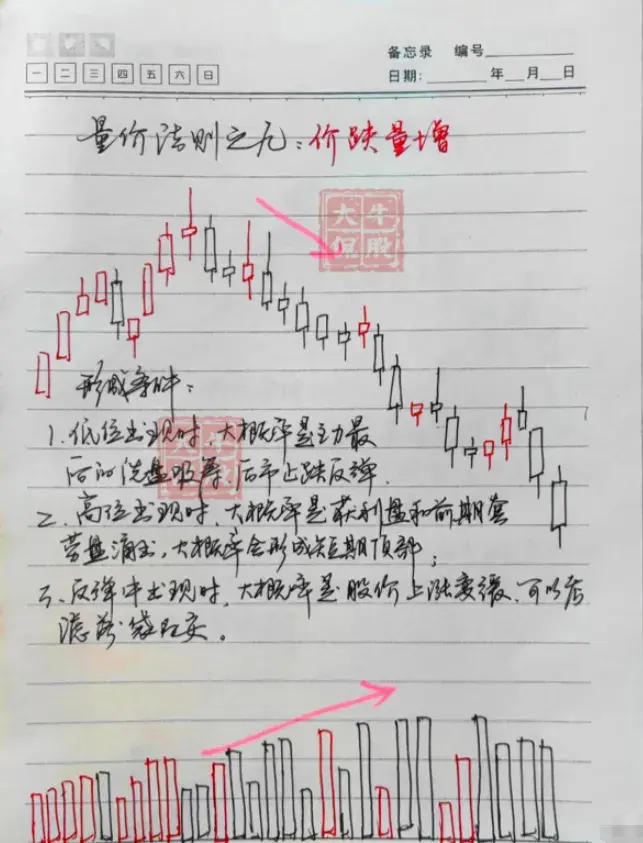 备忘录 编号
一 二 三 四 五 六 日
日期: 年 月 日
量价法则之九:价跌量增
大牛
侃股
形成条件:
1.低位出现时,大概率是主力最
后的洗盘吸筹,后市止跌反弹.
大牛
侃股
2.高位出现时,大概率是获利盘和前期套
劳盘涌出,大概率会形成短期顶部;
3.反弹中出现时,大概率是股价上涨变缓,可以考
虑落袋为安。